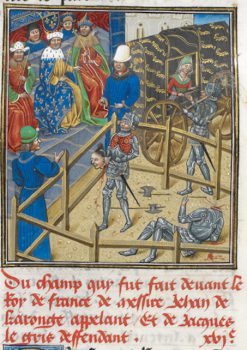 Du champ quy fut fait deuant le
Roy de france de messire Jehan de
karonge appelant Et de Jacques
le gris deffendant. xvjᵉ